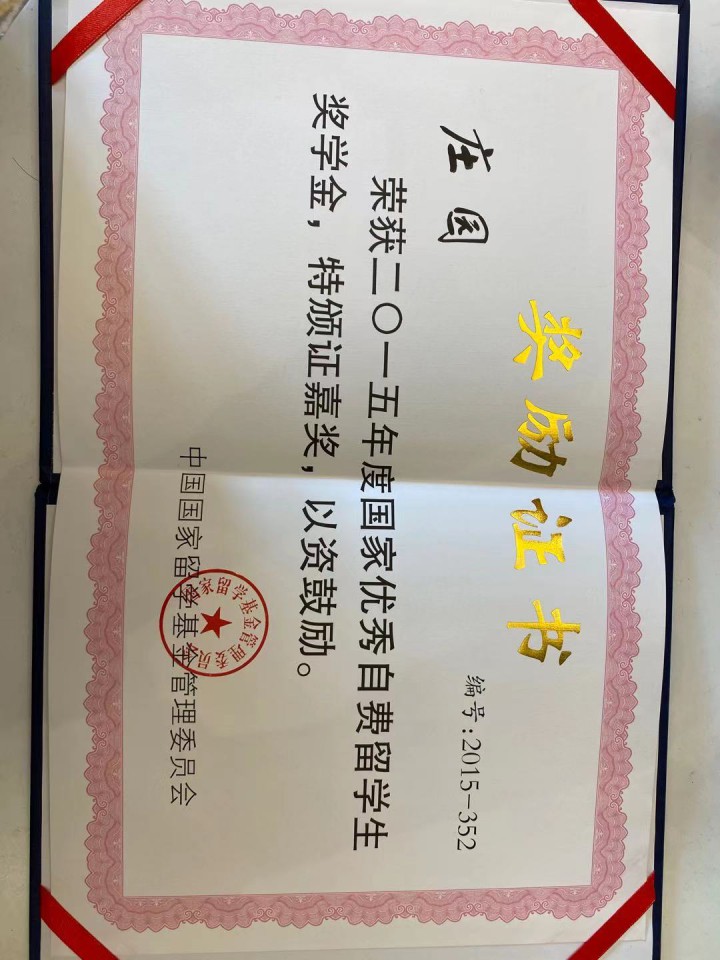 奖励证书
编号:2015-352
庄园
荣获二〇一五年度国家优秀自费留学生
奖学金，特颁证嘉奖，以资鼓励。
中国国家留学基金管理委员会